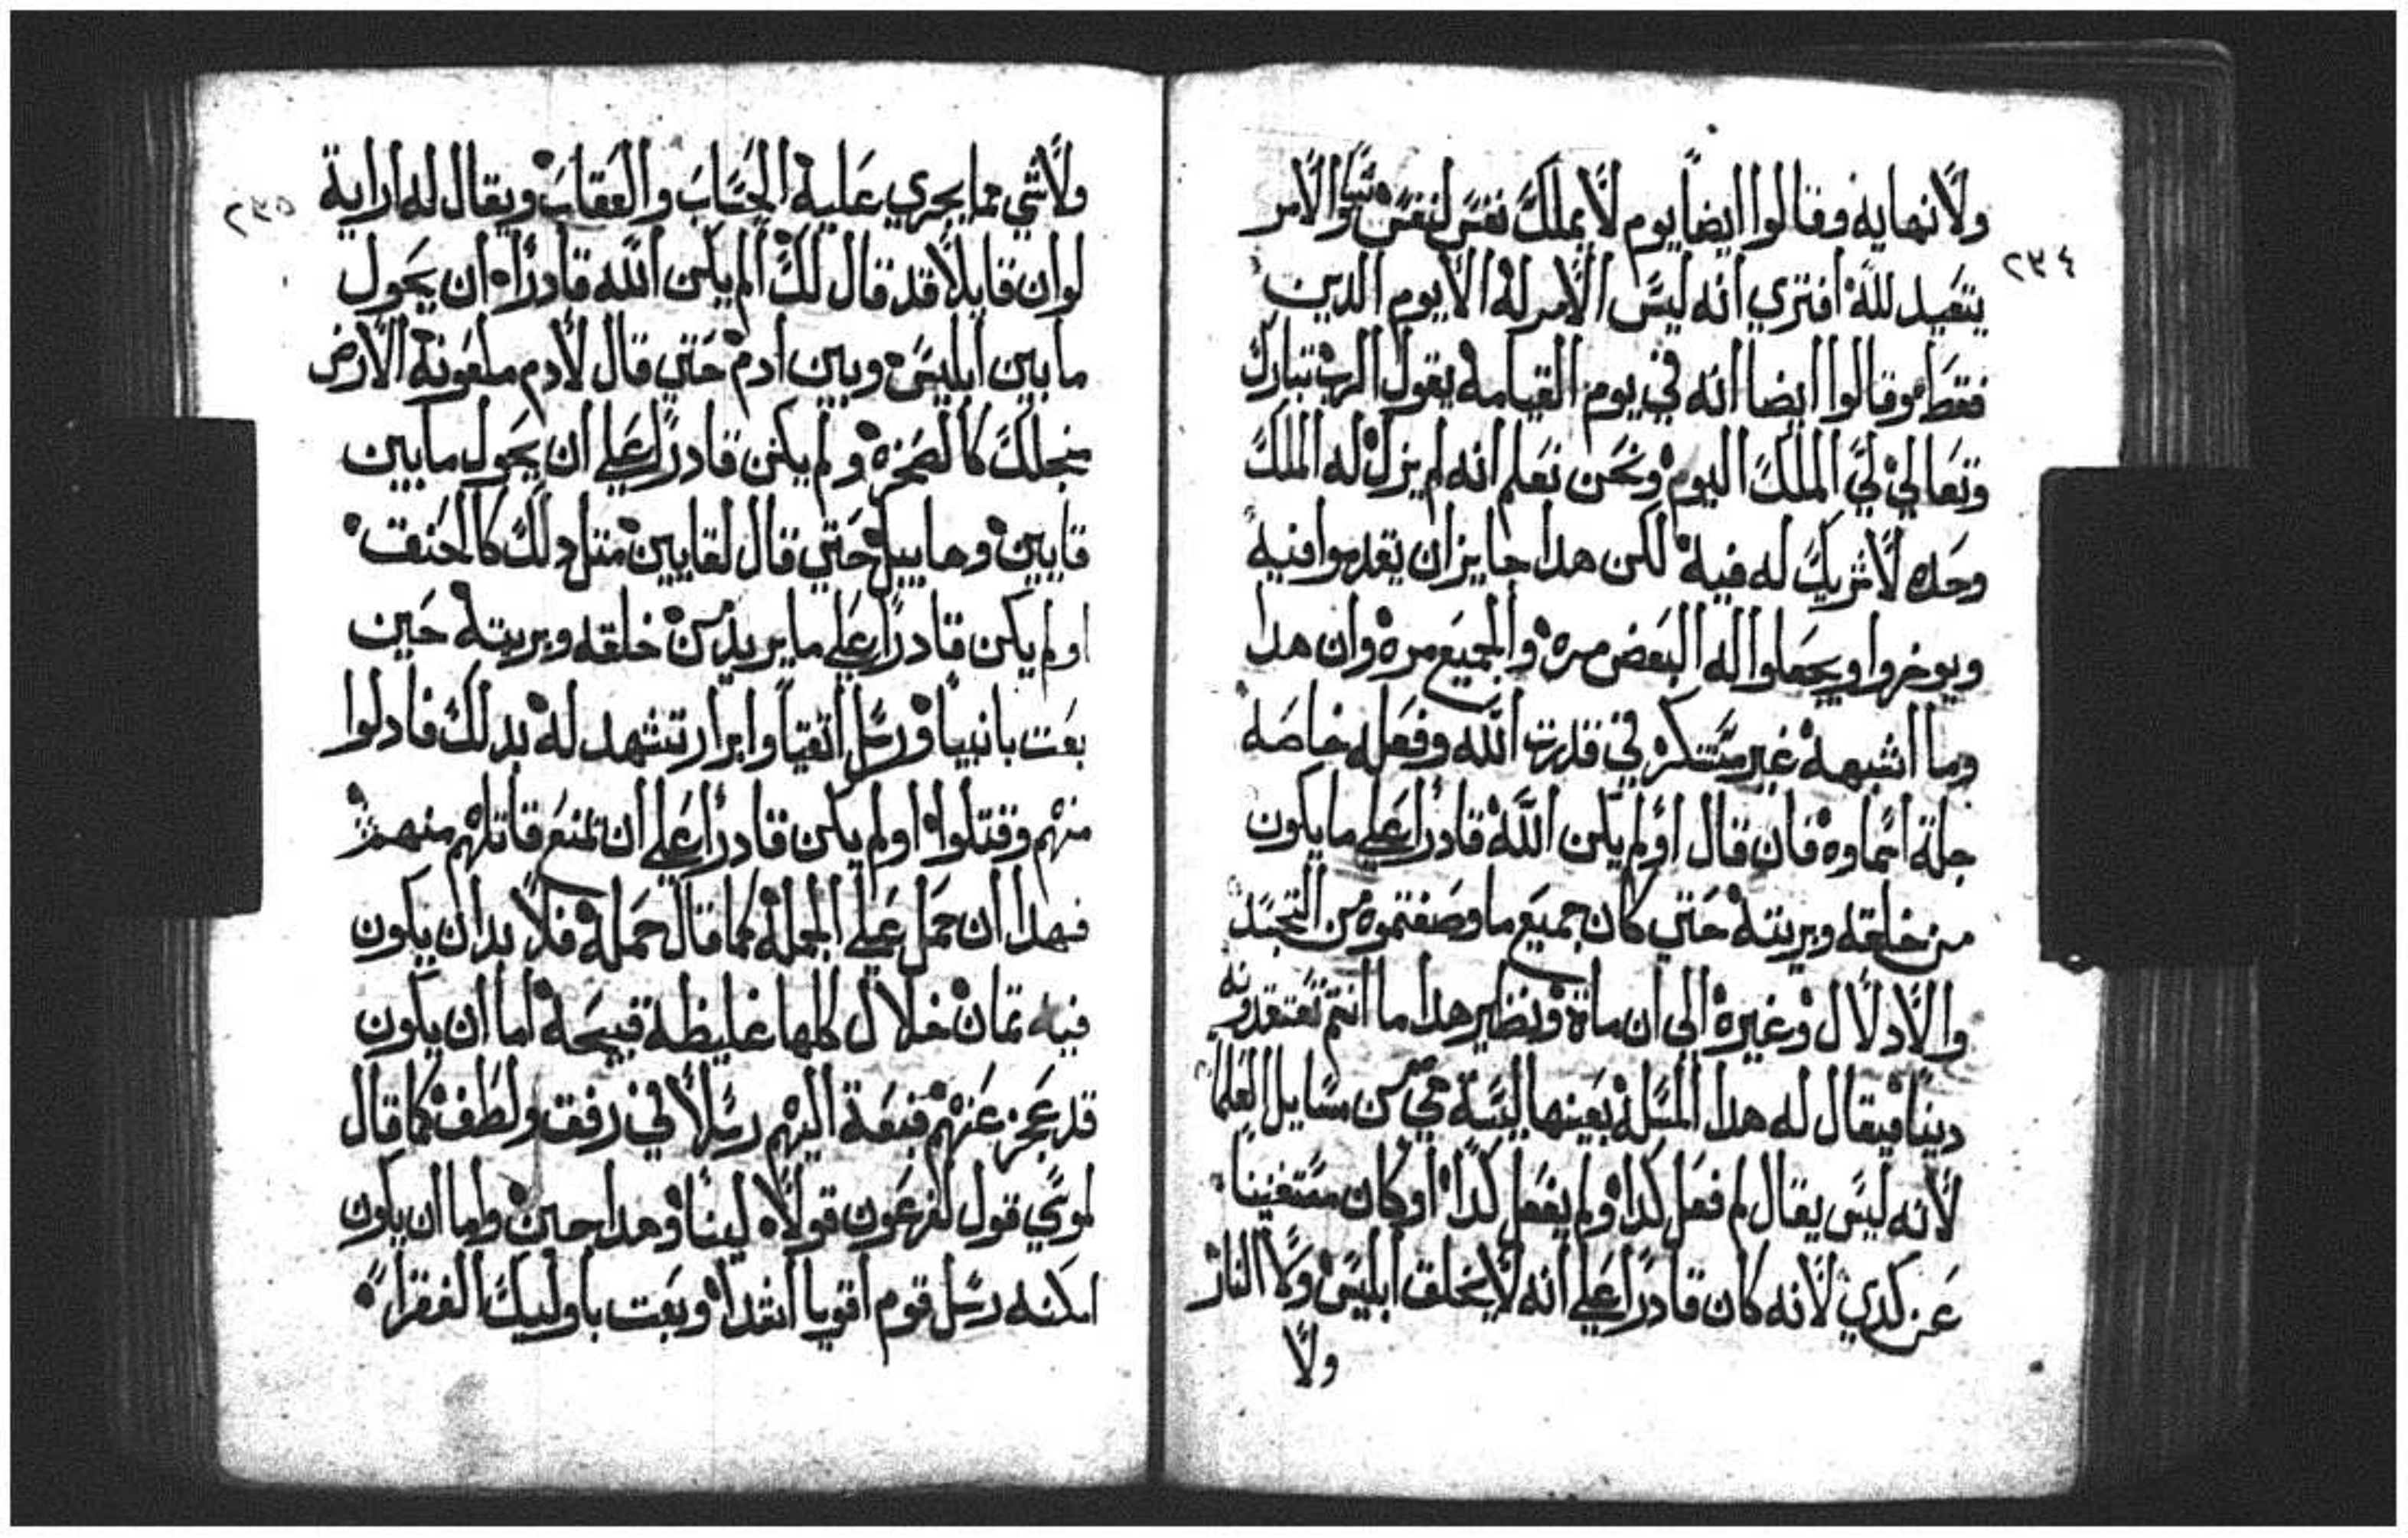 ٢٣٤
ولانهاية وقالوا ايضا يوم لا يملك نفس لنفس شيا والامر
يتعبد لله افترى انه ليس الامر له الا يوم الدين
فقط وقالوا ايضا انه في يوم القيامة يقول الرب تبارك
وتعالي لي الملك اليوم ونحن نعلم انه لم يزل له الملك
وحده لا شريك له فيه لكن هدا جايز ان يقدموا فيه
ويوخروا ويجعلوا له البعض مره والجميع مره وان هدا
وما اشبهه غير مستنكر في قدرت الله وفعله خاصة
جلة اسماوه فان قال اولم يكن الله قادرا علي ما يكون
من خلقه وبريته حتي كان جميع ما وصفتموه من التجسد
والادلال وغيره الى ان ماة ونظير هدا ما انتم تعتقدونه
دينا فيقال له هدا المسلة بعينها ليسة هي من مسايل العلما
لانه ليس يقال لم فعل كدا ولم يفعل كدا او كان مستغنيا
عن كدي لانه كان قادرا علي انه لا يخلق ابليس ولا النار
ولا
٢٣٥
ولا شي مما يجري علية الحساب والعقاب ويقال له اراية
لو ان قايلا قد قال لك الم يكن الله قادرا ان يحول
ما بين ابليس وبين ادم حتي قال لادم ملعونة الارض
من اجلك كالضجره ولم يكن قادرا علي ان يحول ما بين
قايين وهابيل حتي قال لقايين متل دلك كالحنق
اولم يكن قادرا علي ما يريد من خلقه وبريته حين
بعت بانبيا ورسل اتقيا وابرار تشهد له بدلك فادلوا
منهم وقتلوا اولم يكن قادرا علي ان يمنع قاتلهم منهم
فهدا ان حمل علي الجملة كما قال حمله فلا بد ان يكون
فيه تمان خلال كلها غليظة قبيحة اما ان يكون
قد عجز عنهم فبعة اليهم رسلا في رفق ولطف كما قال
لموسي قول لفرعون قولا لينا وهدا جبن واما ان يكون
امكنه رسل قوم اقويا اشدا وبعت باوليك الفقرا